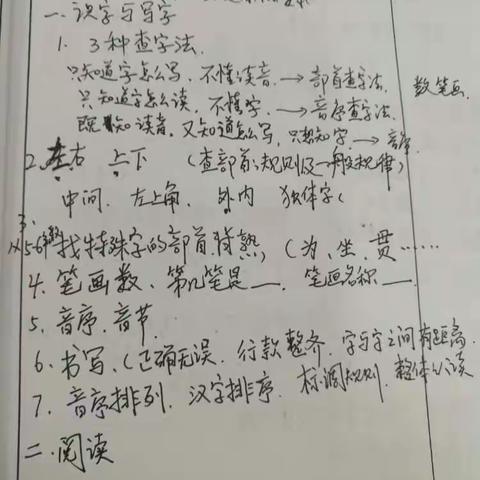 一.识字与写字
1. 3种查字法.
只知道字怎么写,不懂读音.→部首查字法. 数笔画.
只知道字怎么读,不懂字.→音序查字法.
既知读音,又知道怎么写,只想知字→音序.
2. 左右 上下 (查部首:规则及一般规律)
中间. 左上角. 外内 独体字(
3.
找特殊字的部首背熟,(为、坐、贯……
4. 笔画数、第几笔是__. 笔画名称__.
5. 音序.音节.
6. 书写.(正确无误.行款整齐.字与字之间有距离.
7. 音序排列. 汉字排序. 标调规则.整体认读
二.阅读